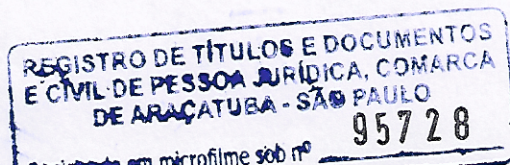 REGISTRO DE TÍTULOS E DOCUMENTOS
E CIVIL DE PESSOA JURÍDICA, COMARCA
DE ARAÇATUBA - SÃO PAULO
95728
em microfilme sob nº